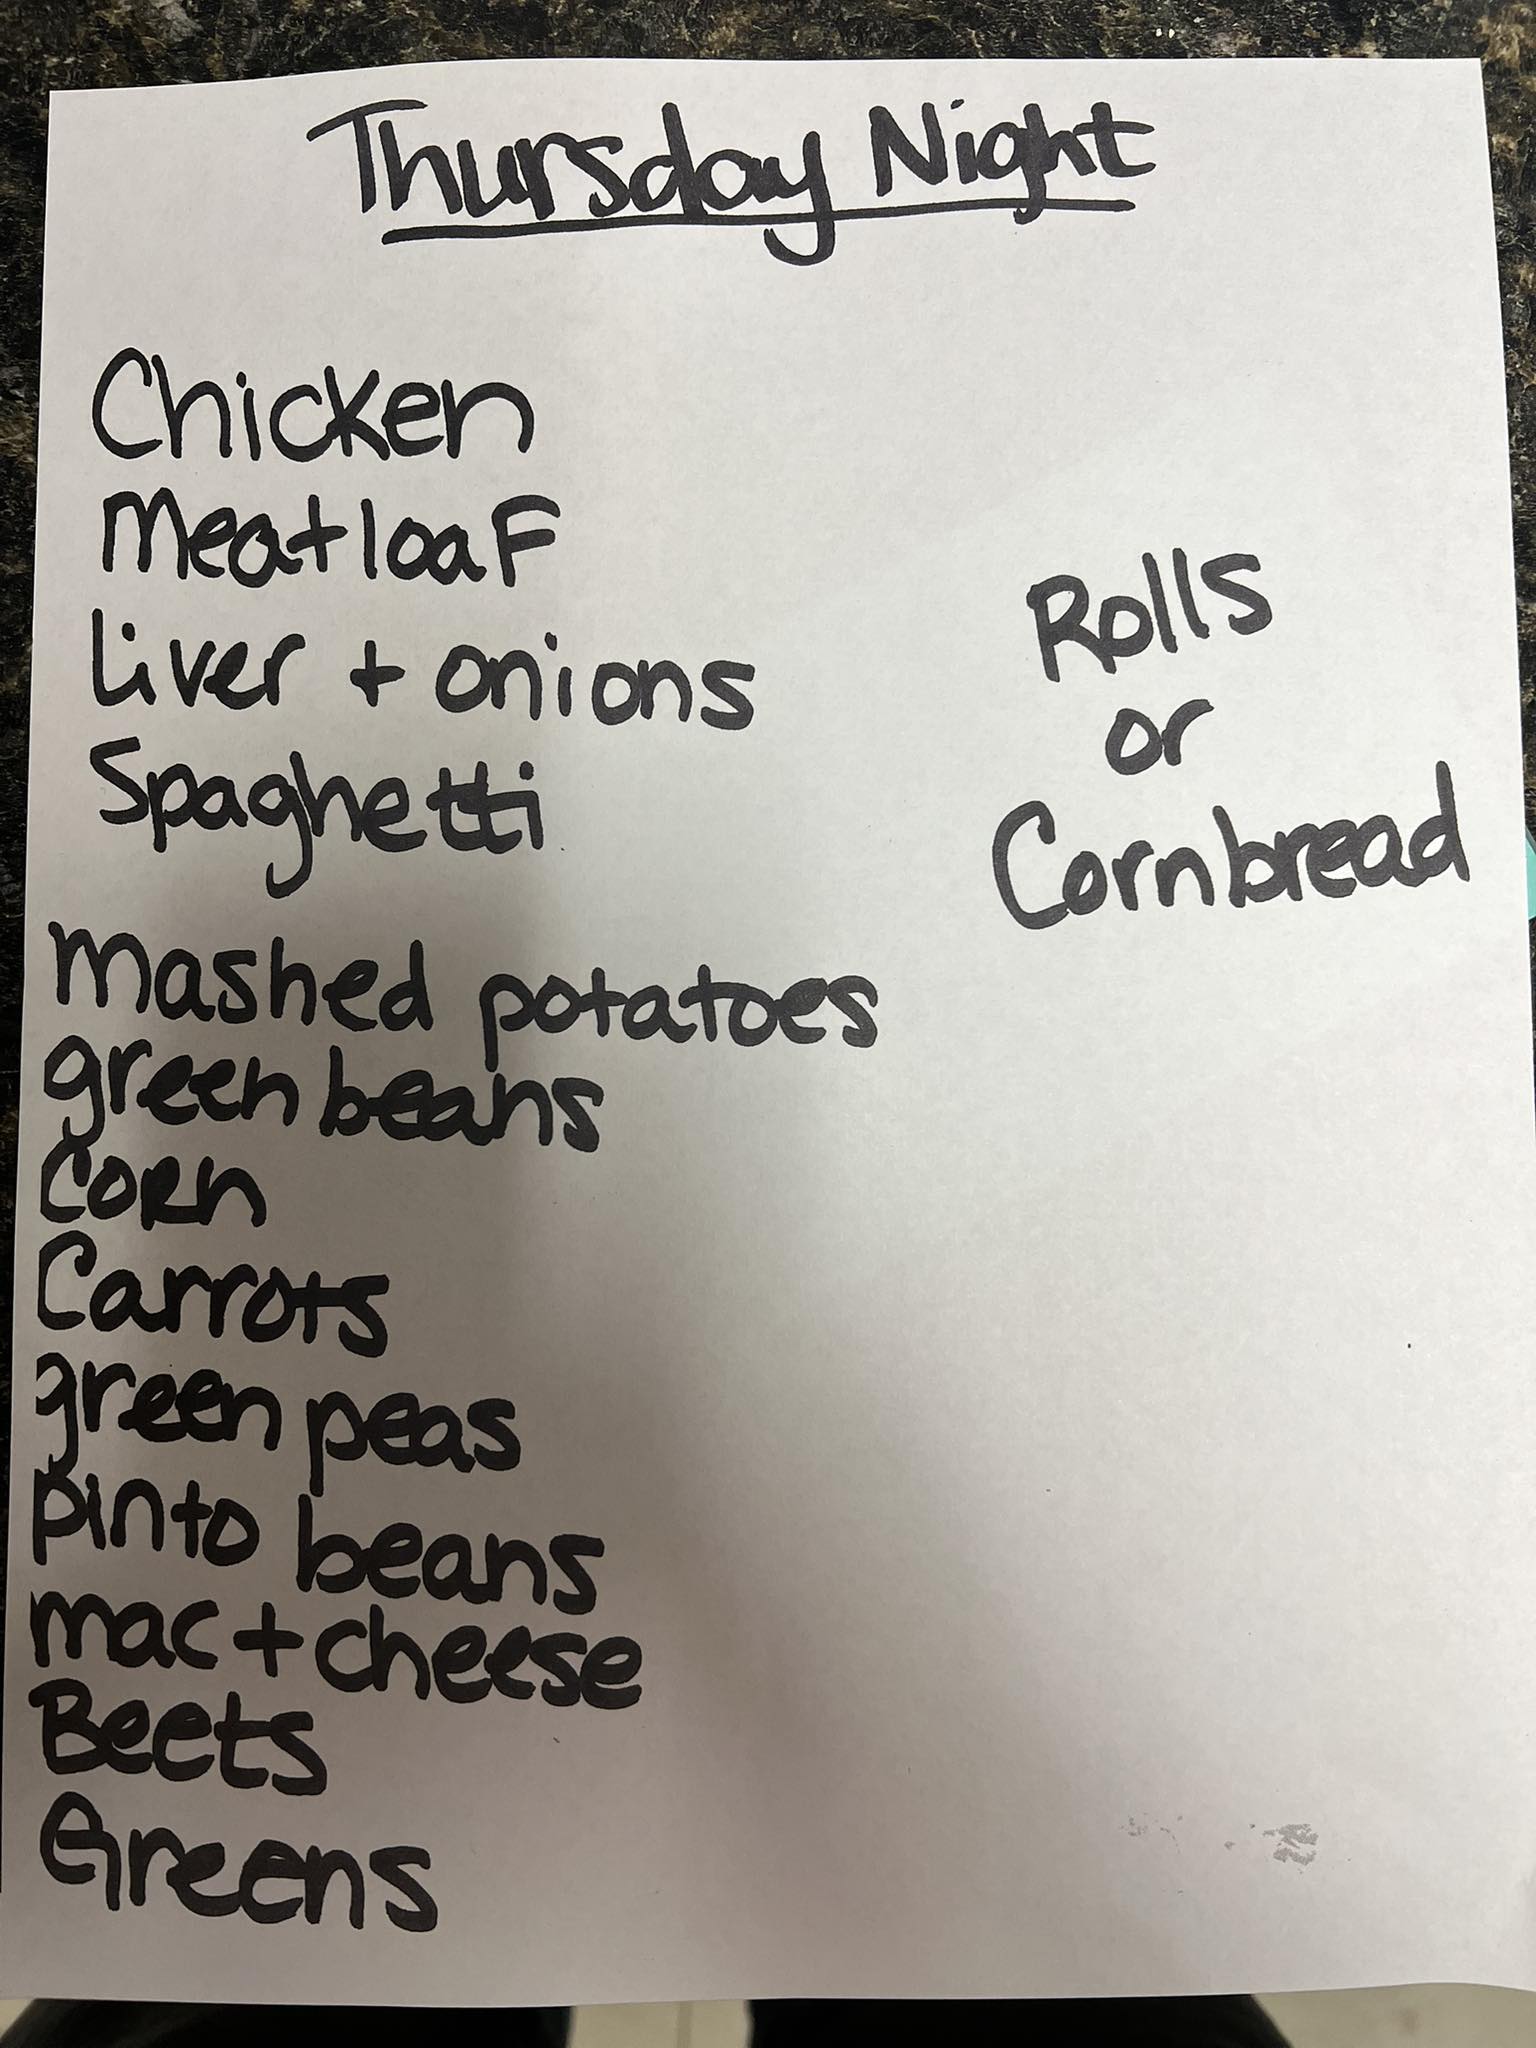 Thursday Night
Chicken
Meatloaf
Liver + onions
Spaghetti
Rolls
or
Cornbread
mashed potatoes
green beans
corn
Carrots
green peas
pinto beans
mac + cheese
Beets
Greens